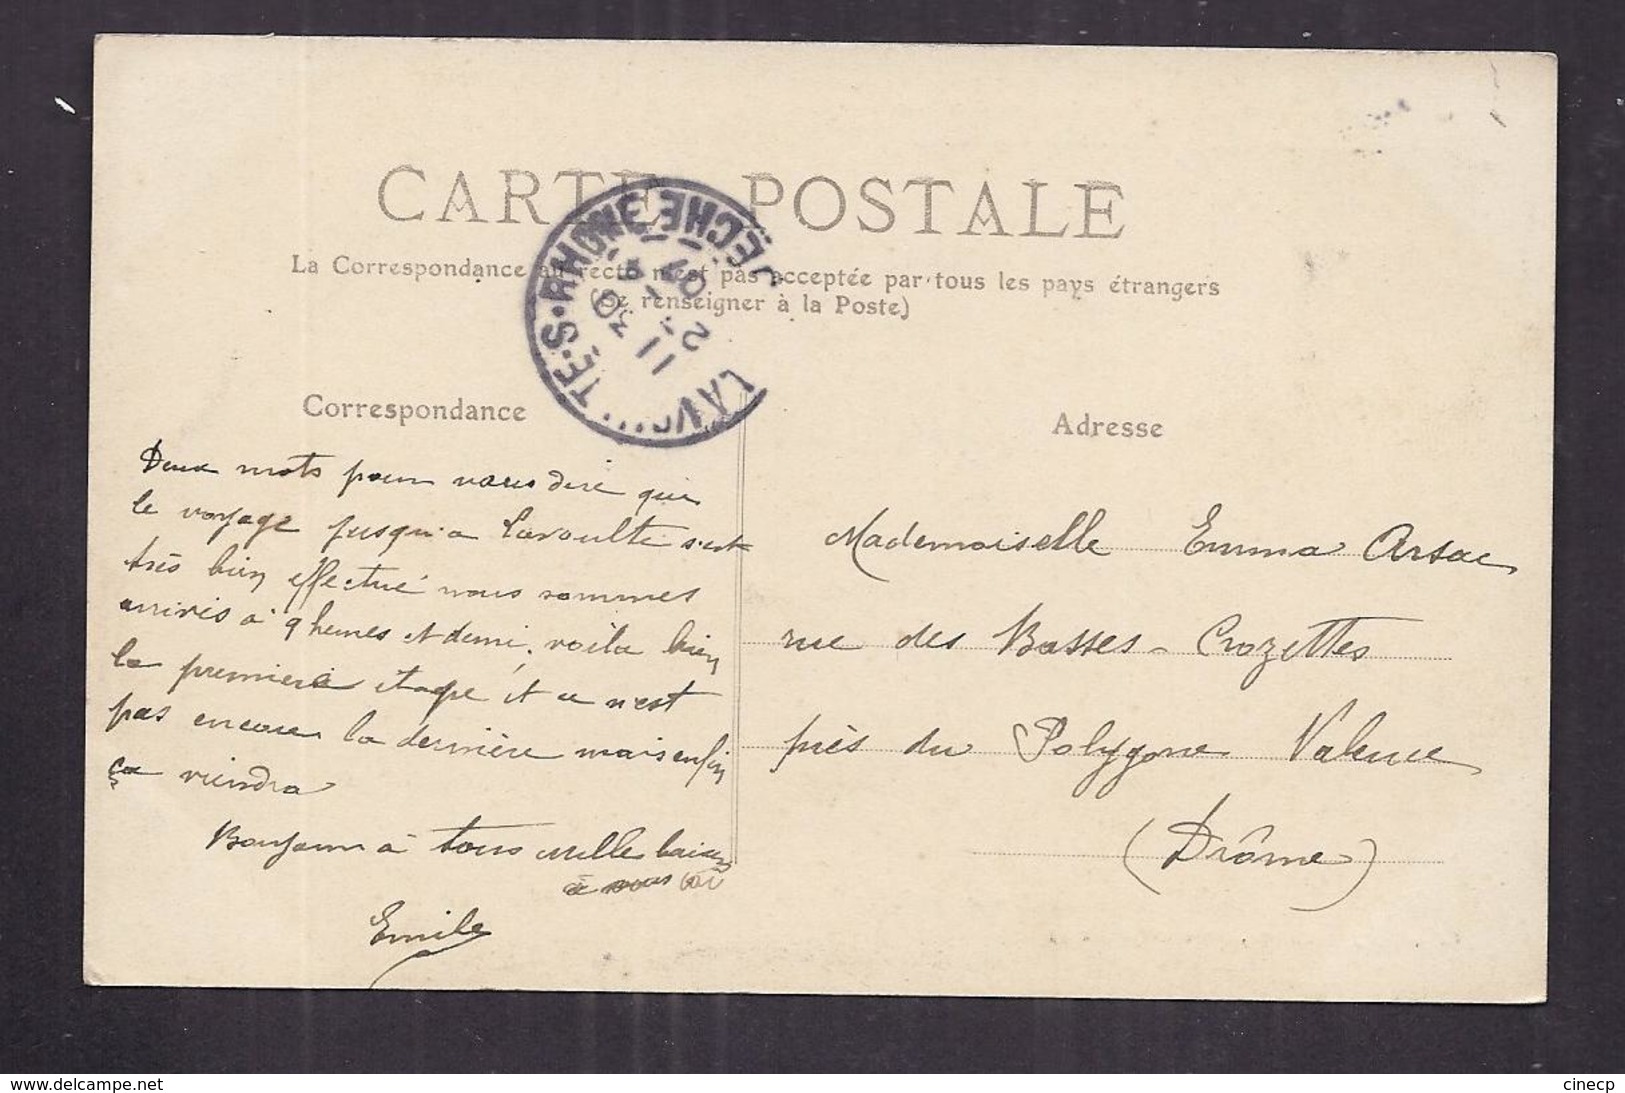 CARTE POSTALE
La Correspondance au recto n'est pas acceptée par tous les pays étrangers
(Se renseigner à la Poste)
LAV TE-S-RHONE
ÈCHE
11 30
2 - 9
07
Correspondance
Deux mots pour vous dire que
le voyage jusqu'a Lavoulte s'est
très bien effectué nous sommes
arrivés à 9 heures et demi, voila bien
la premiere etape et ce n'est
pas encore la dernière mais enfin
ça viendra
Bonjour à tous mille baisers
à vous
Emile
Adresse
Mademoiselle Emma Arsac
rue des Basses-Crozettes
près du Polygone Valence
(Drôme)
www.delcampe.net
cinecp